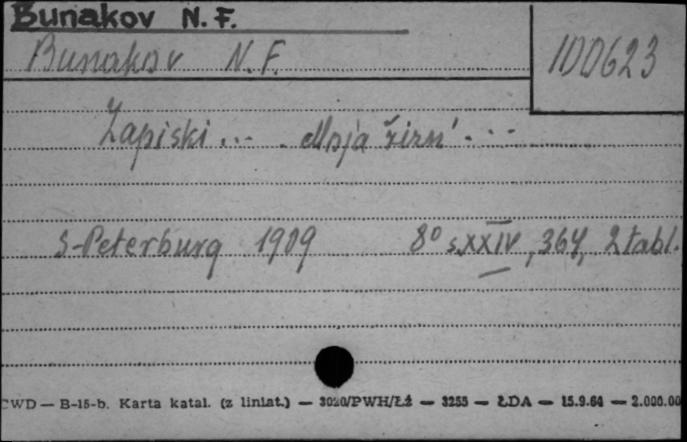 Bunakov N. F.
Bunakov N. F.
100623
Zapiski ... Moja žizn' ...
S-Peterburg 1909 8° s.XXIV, 364, 2 tabl.
CWD — B-15-b. Karta katal. (z liniat.) — 3020/PWH/Łź — 3255 — ŁDA — 15.9.64 — 2.000.00